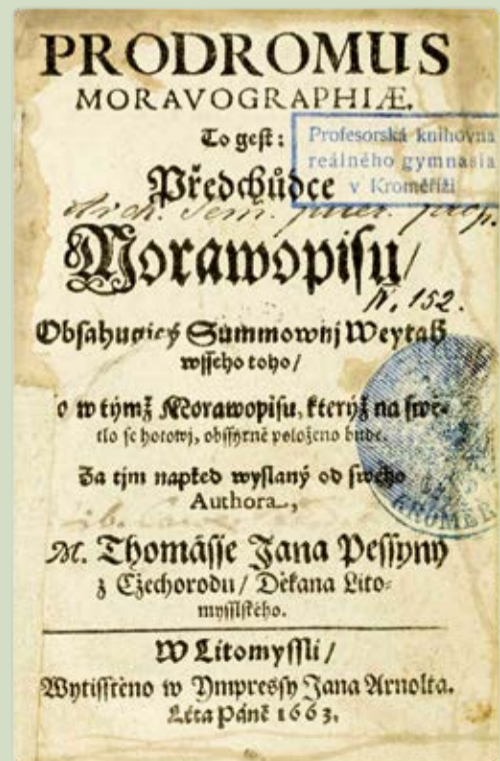 PRODROMUS
MORAVOGRAPHIÆ.
To gest:
Profesorská knihovna
reálného gymnasia
v Kroměříži
Předchůdce
Morawopisu/
N. 152.
Obsahugicý Summownj Weytah
wsseho toho/
o w týmž Morawopisu, kterýž na swě-
tlo se hotowj, obssyrně položeno bude.
Za tjm napřed wyslaný od swého
Authora,
M. Thomásse Jana Pessyny
z Cžechorodu/ Děkana Lito-
mysslského.
W Litomyssli/
Wytisstěno w Ympressy Jana Arnolta.
Léta Páně 1663.